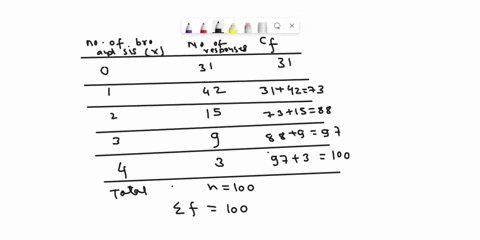 no. of bro and sis (x) No. of responses Cf
0 31 31
1 42 31+42=73
2 15 73+15=88
3 9 88+9=97
4 3 97+3 =100
Total n=100
Σf = 100